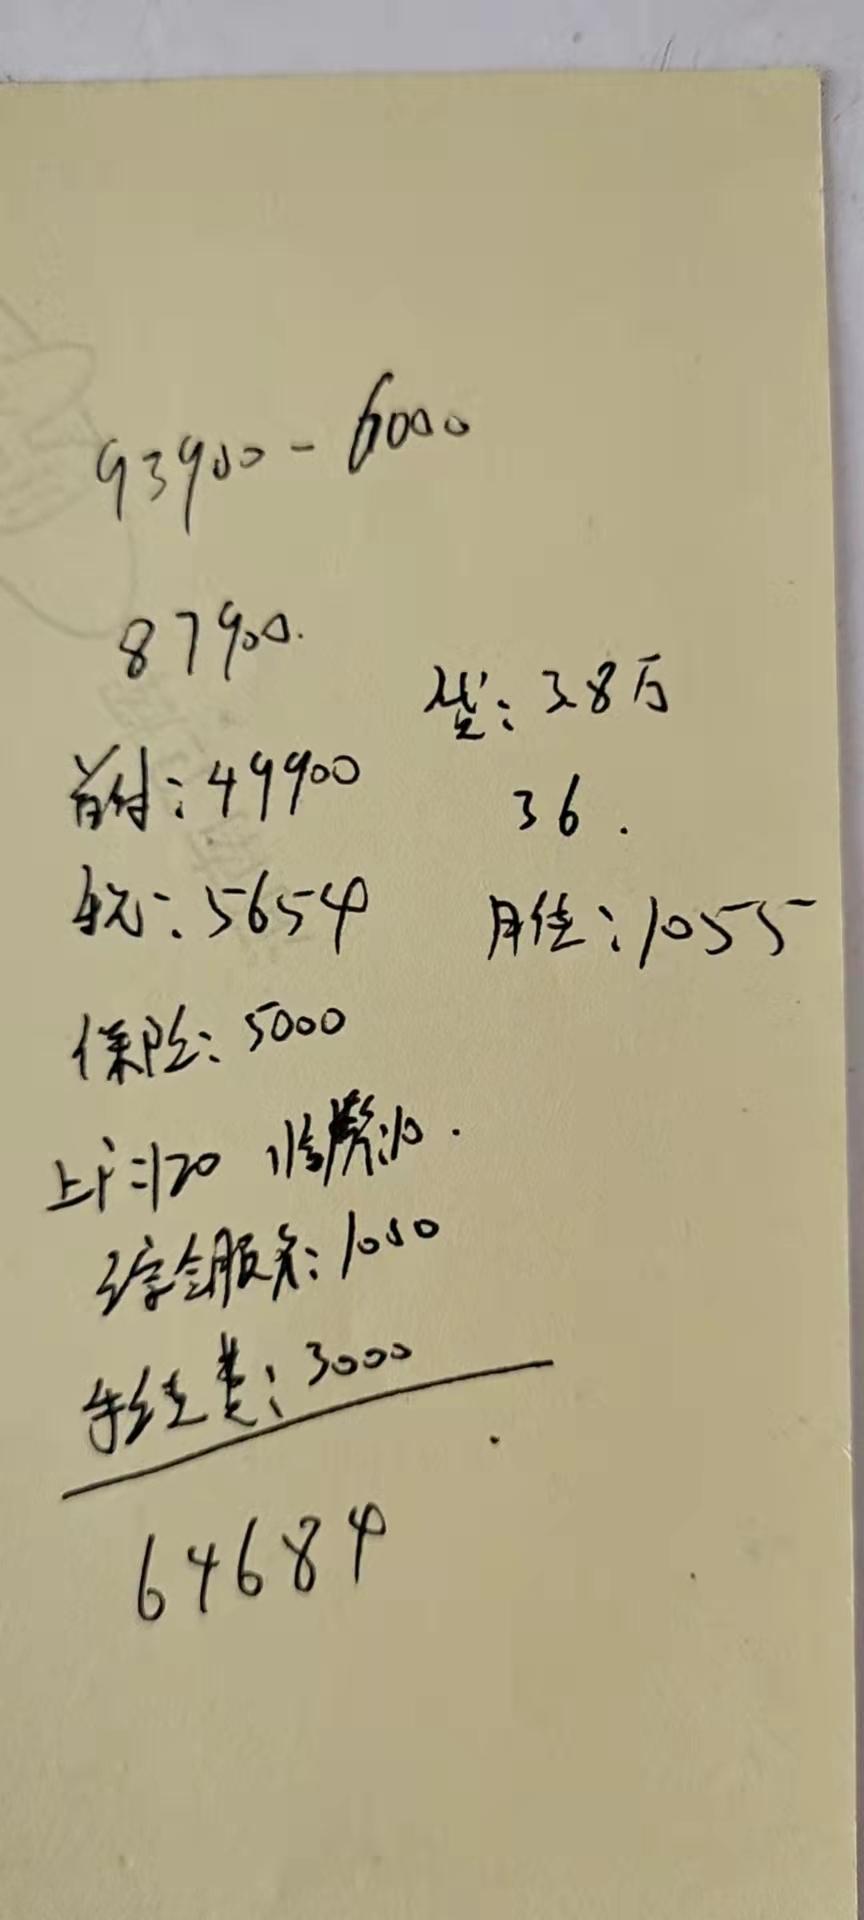 93900-6000
87900.
贷:3.8万
首付:49900
36.
车税:5654
月供:1055
保险:5000
上户:120 临牌:10.
综合服务:1000
手续费:3000
64684